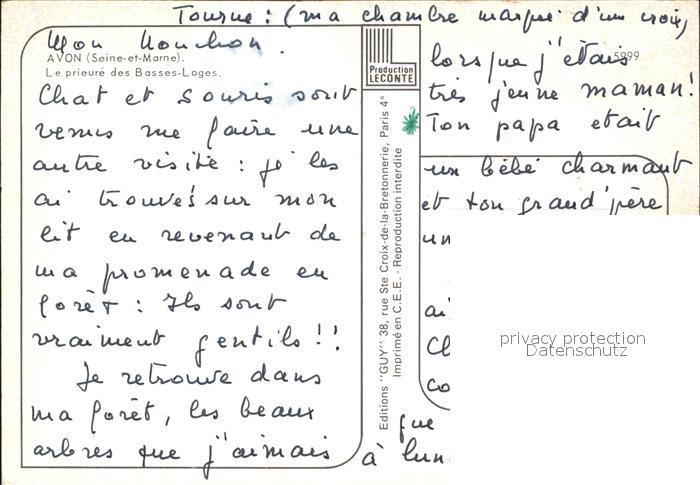 Tourne : (ma chambre marqué d'un croix)
Mon Mouchon.
AVON (Seine-et-Marne).
Le prieuré des Basses-Loges.
Chat et souris sont
venus me faire une
autre visite : je les
ai trouvés sur mon
lit en revenant de
ma promenade en
forêt : Ils sont
vraiment gentils !!
Je retrouve dans
ma forêt, les beaux
arbres que j'aimais
Production
LECONTE
Editions "GUY" 38, rue Ste Croix-de-la-Bretonnerie, Paris 4e
Imprimé en C.E.E. - Reproduction interdite
5999
lorsque j'étais
très jeune maman!
Ton papa etait
un bébé charmant
et ton grand'père
un
ai
Cl
co
que
à lun
privacy protection
Datenschutz